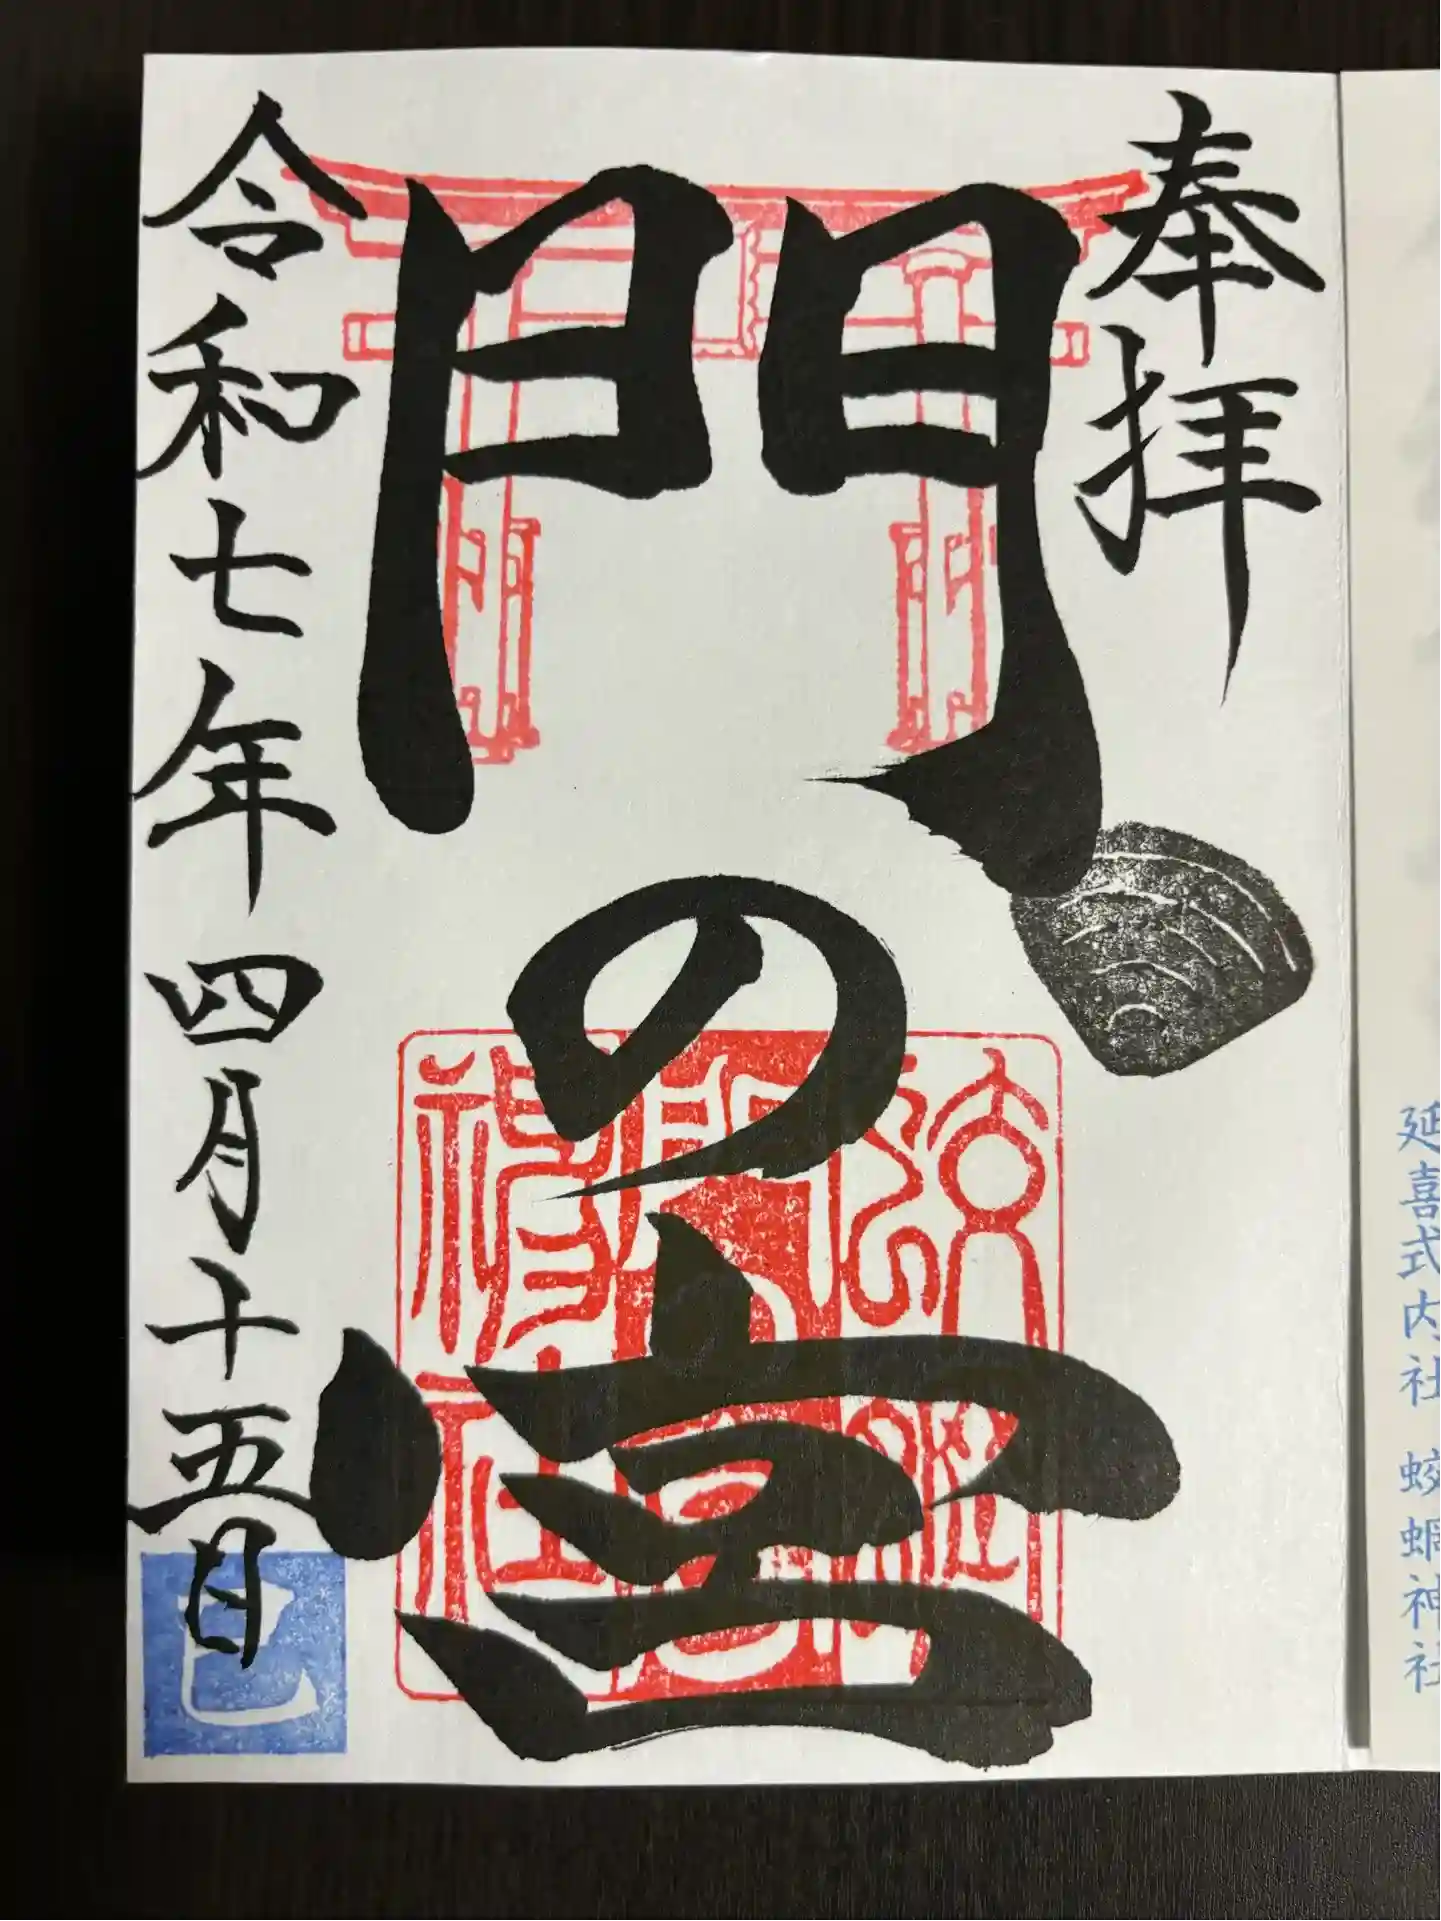 延喜式内社 蛟蝄神社
奉拝
門の宮
令和七年四月十五日
巳